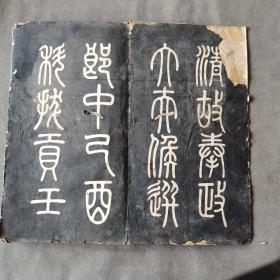 清故奉政
大夫候選
郎中乙酉
科拔貢王